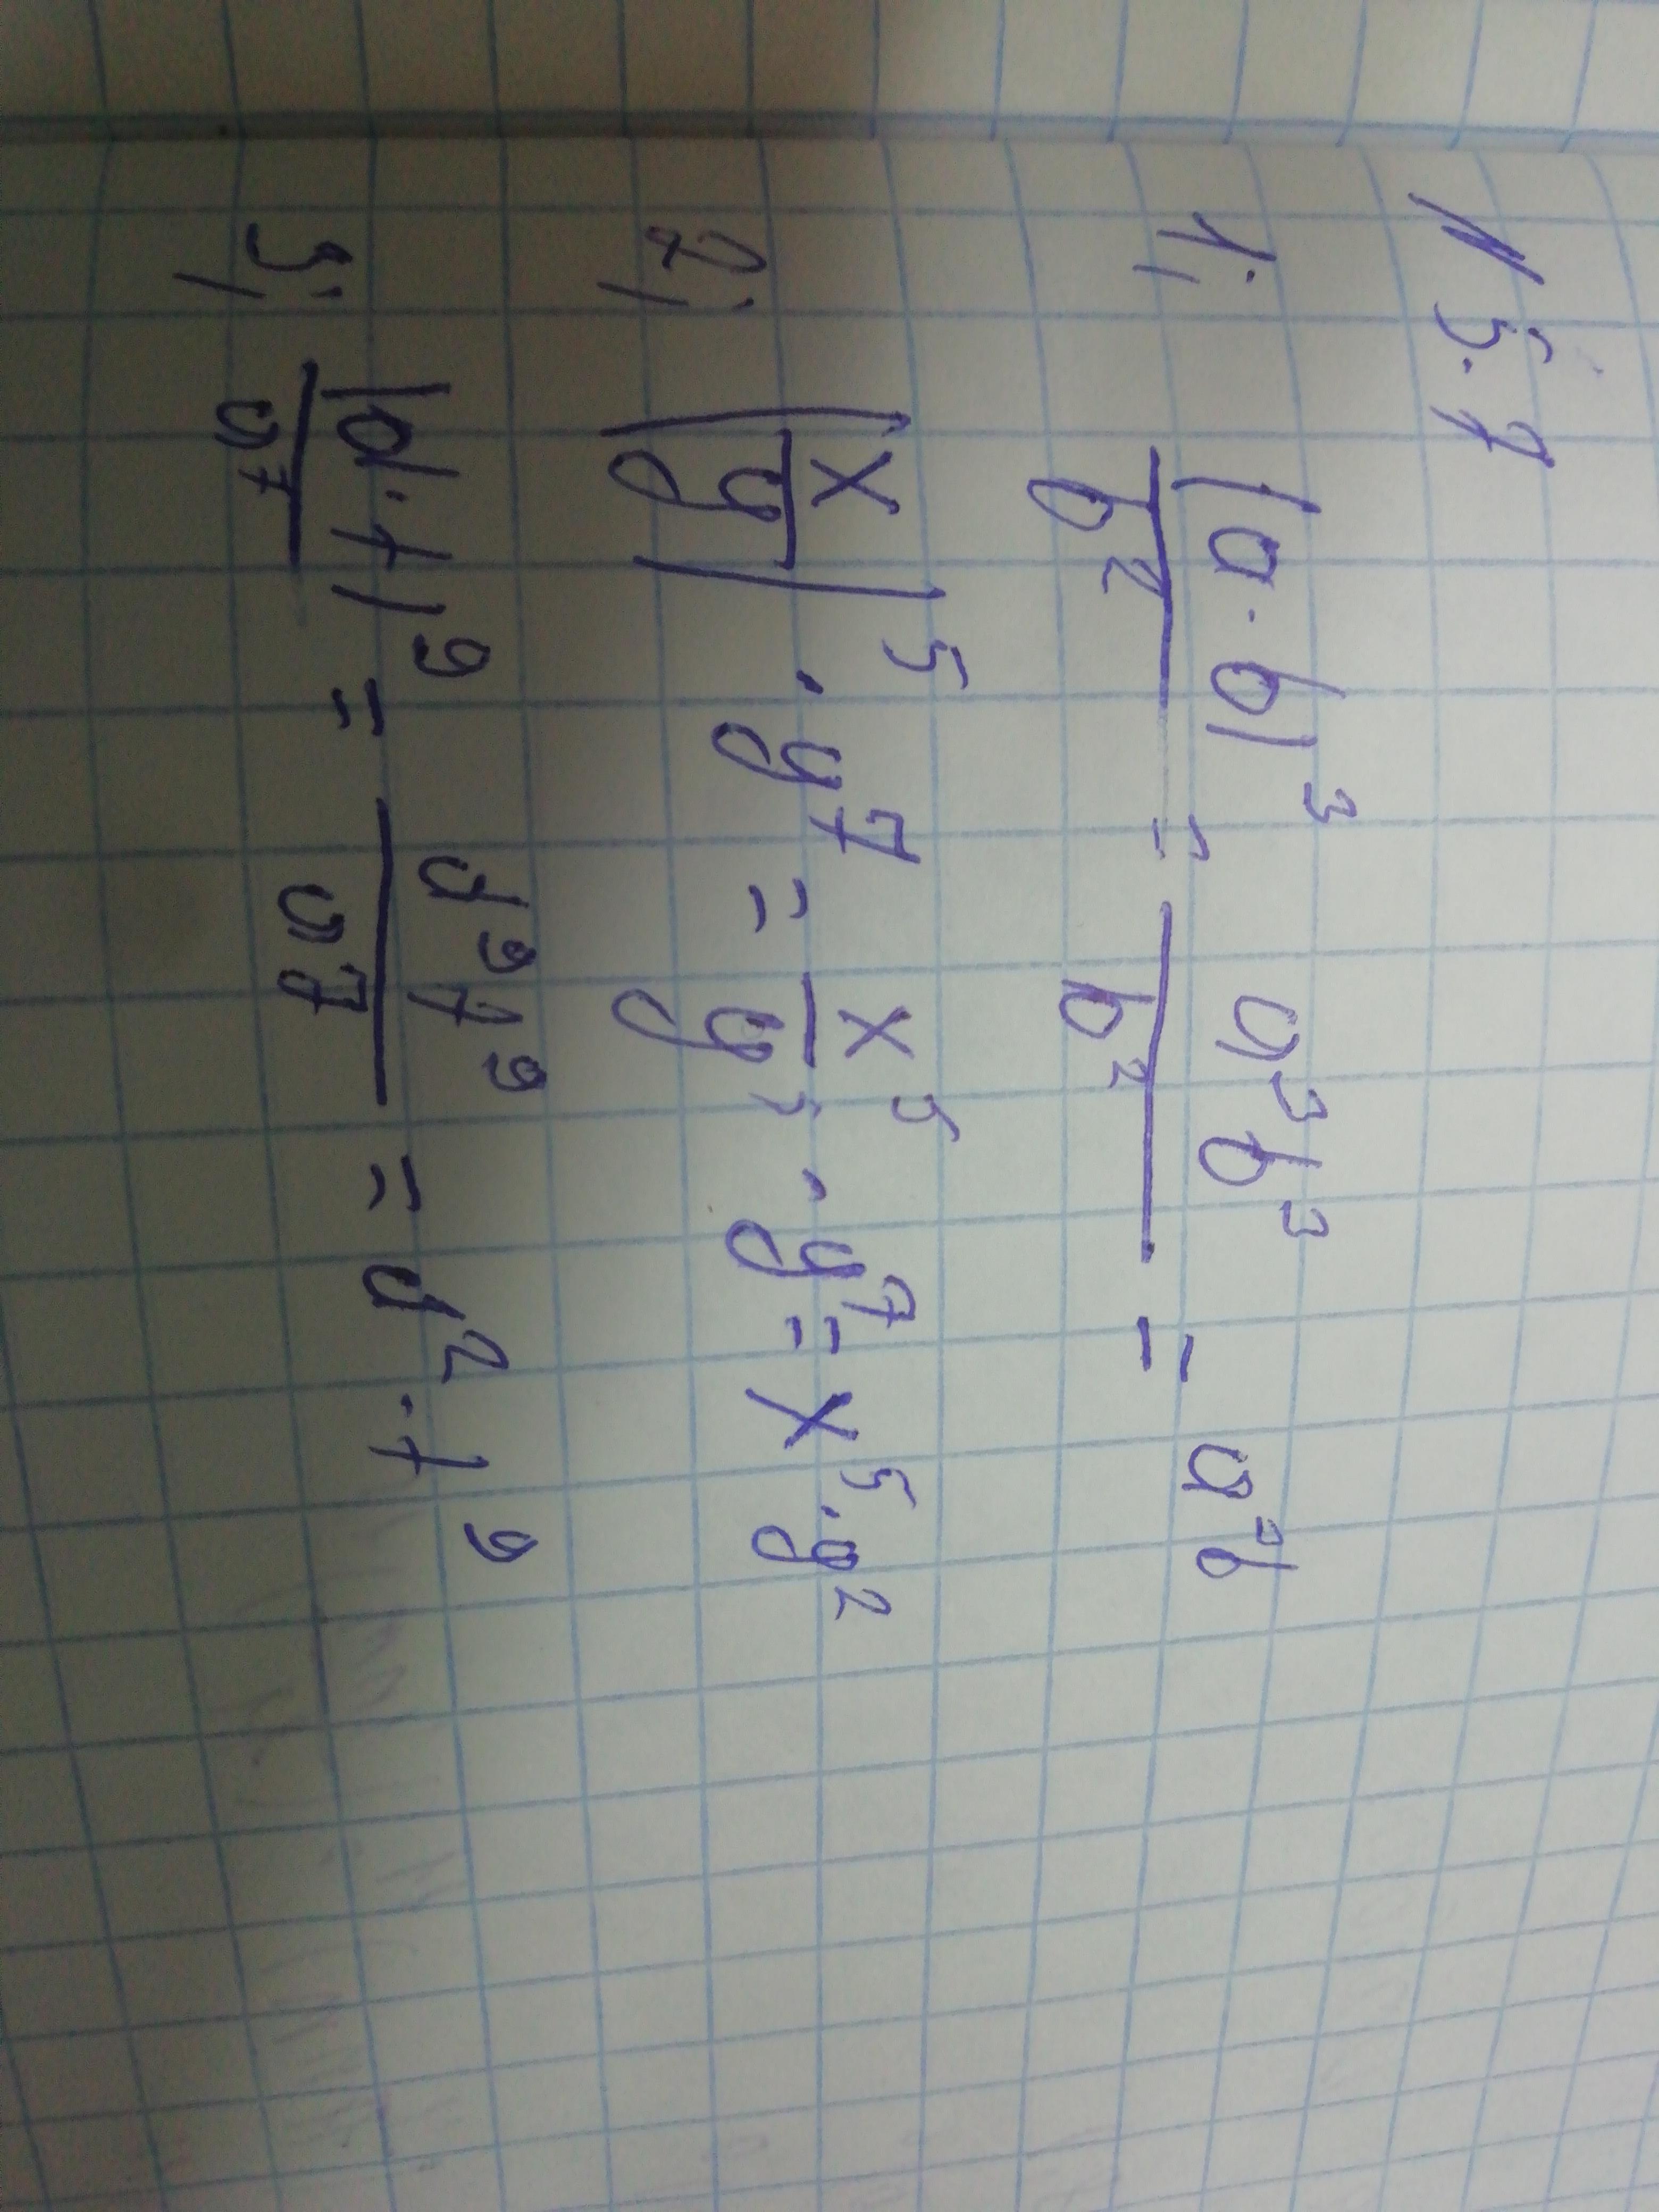 N 5.7
1) (a·b)³/b² = a³b³/b² = a³b
2) (x/y)⁵ · y⁷ = x⁵/y⁵ · y⁷ = x⁵·y²
3) (d·t)⁹/d⁷ = d⁹t⁹/d⁷ = d²·t⁹